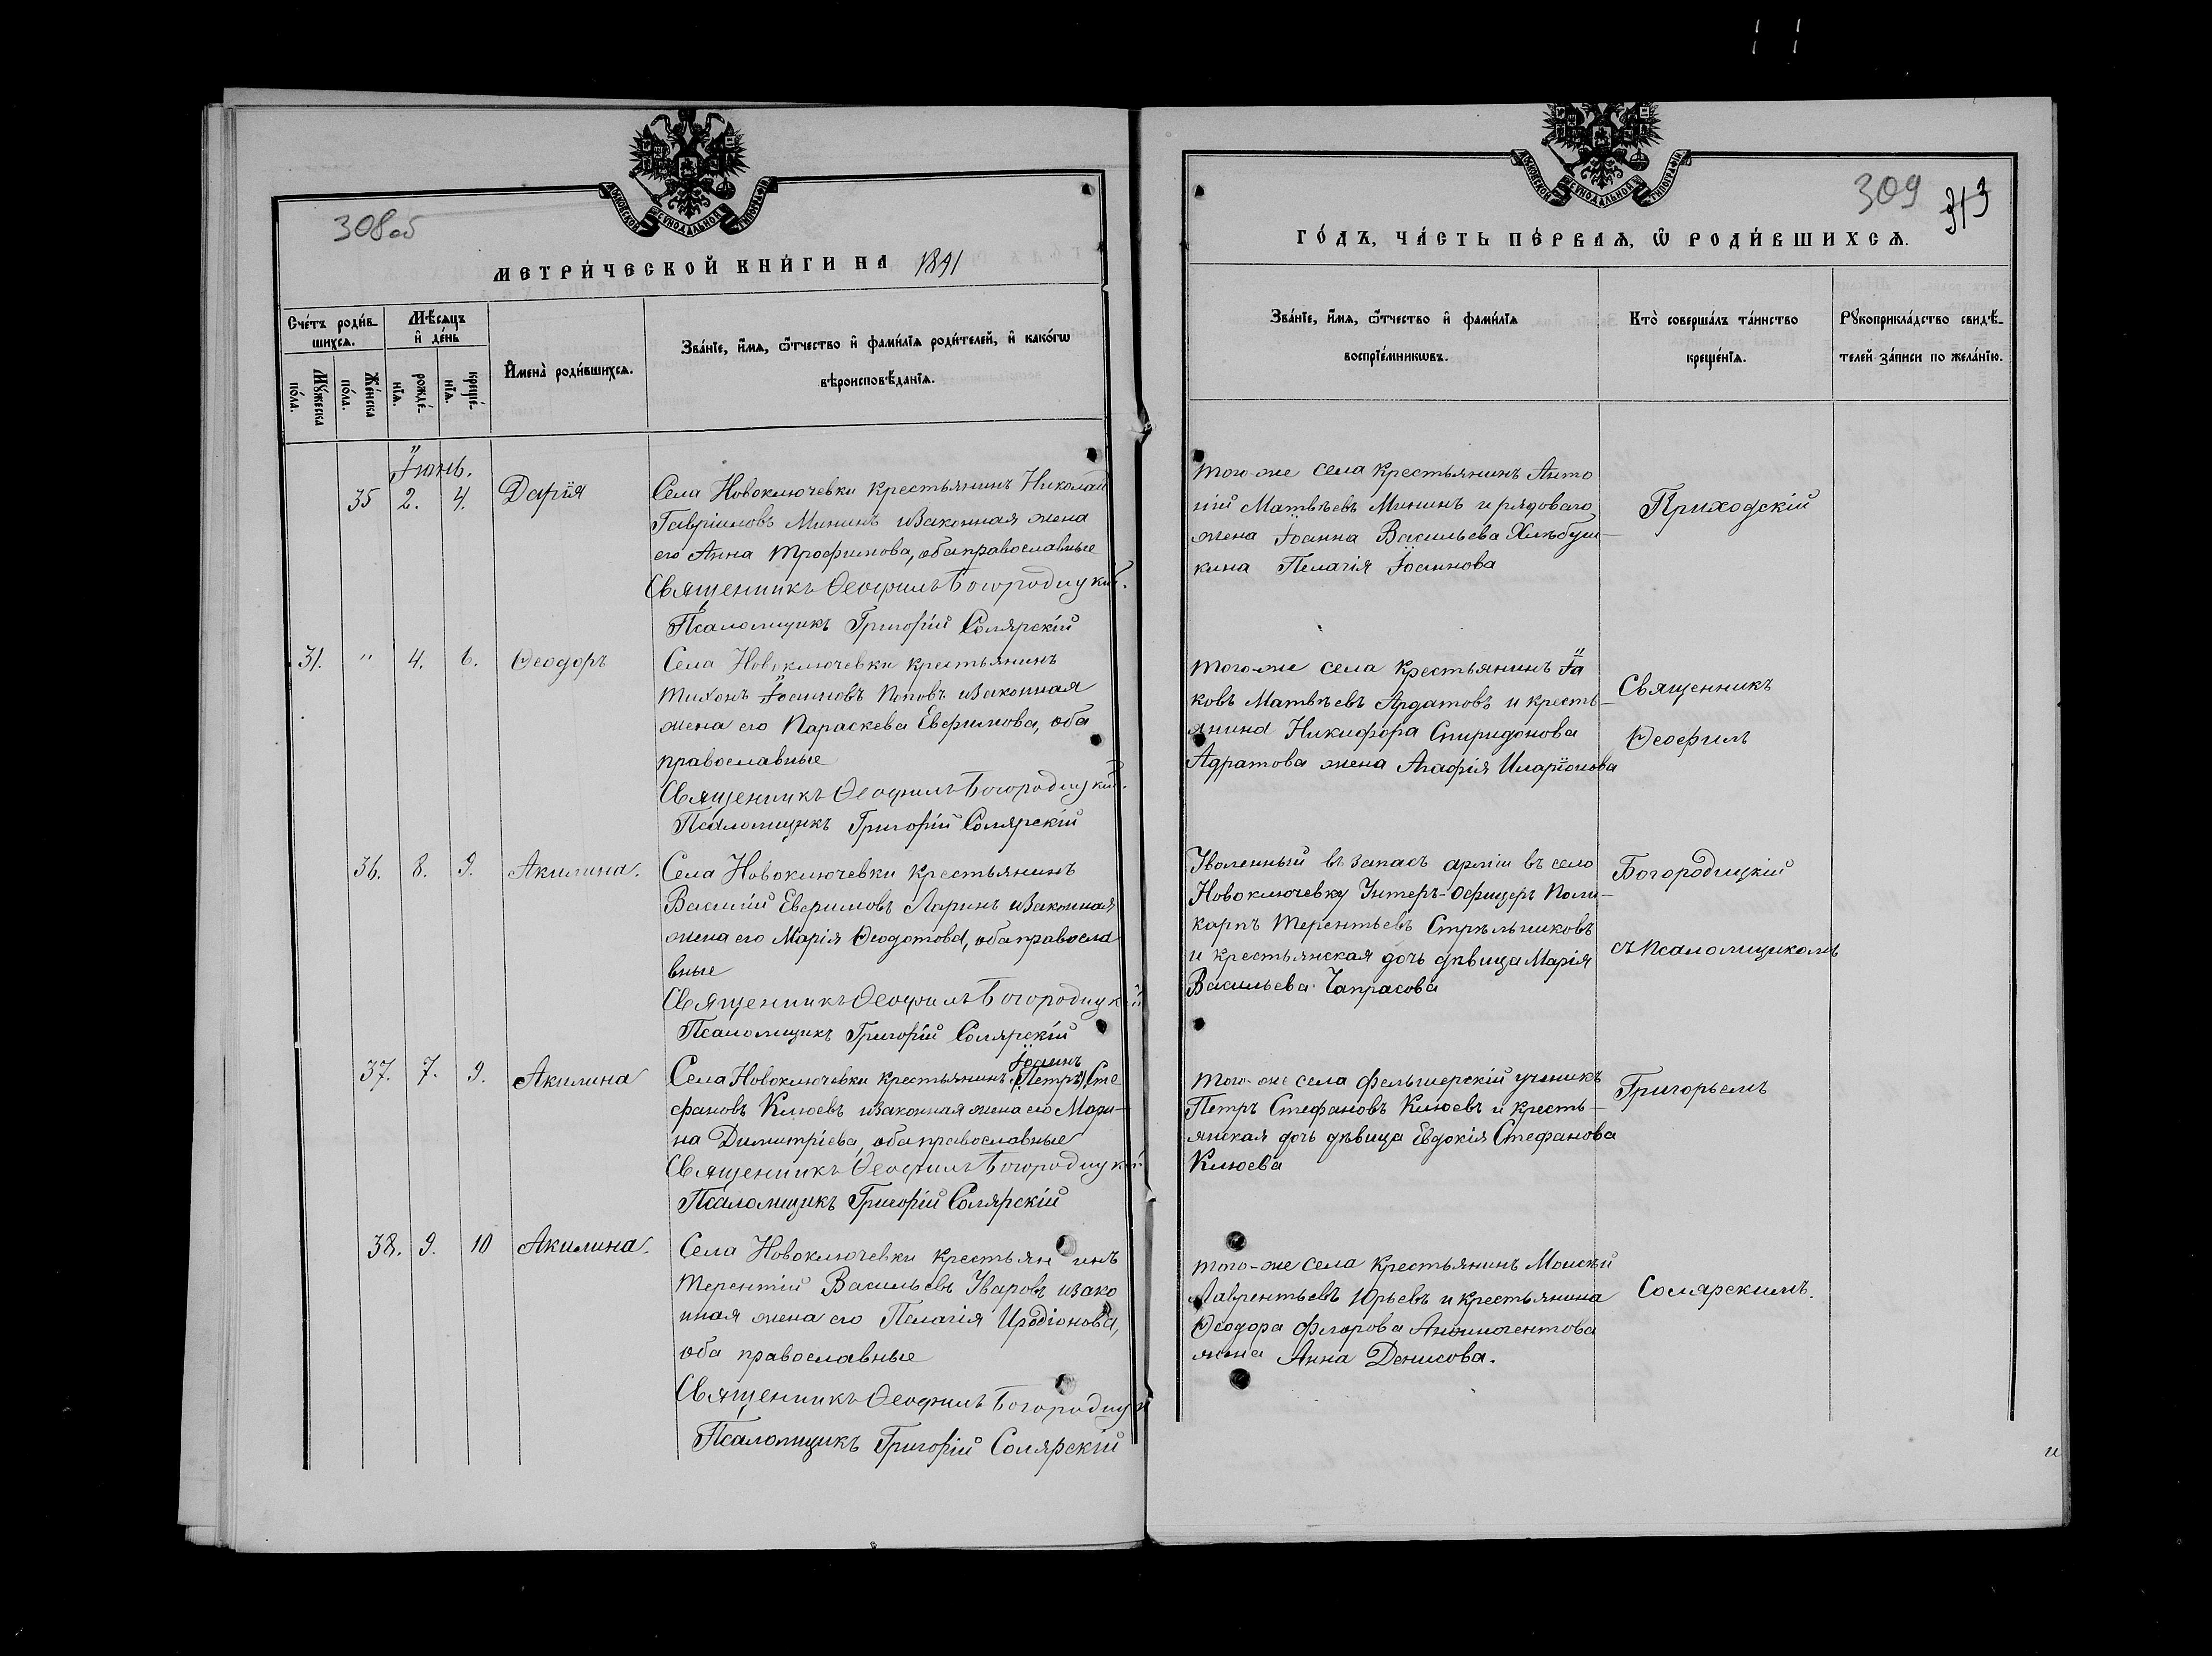 308об
МОСКОВСКОЙ СѴНОДАЛЬНОЙ ТИПОГРАФІИ
МЕТРИ́ЧЕСКОЙ КНИ́ГИ НА 1891
Сче́тъ роди́в-
шихсѧ.
Мѣ́сѧцъ
и҆ де́нь
Мꙋ́жеска
по́ла.
Же́нска
по́ла.
рожде́-
нїѧ.
креще́-
нїѧ.
И҆мена̀ роди́вшихсѧ.
Зва́нїе, и҆́мѧ, ѻ҆́тчество и҆ фами́лїѧ роди́телей, и҆ како́гѡ
вѣроисповѣ́данїѧ.
Іюнь.
35 2. 4. Дарія
Села Новоключевки крестьянинъ Николай
Гавріиловъ Мининъ и законная жена
его Анна Трофимова, оба православные
Священникъ Ѳеофилъ Богородицкій.
Псаломщикъ Григорій Солярскій
31. " 4. 6. Ѳеодоръ
Села Новоключевки крестьянинъ
Тихонъ Іоанновъ Поповъ и законная
жена его Параскева Евфимова, оба
православные
Священникъ Ѳеофилъ Богородицкій.
Псаломщикъ Григорій Солярскій
36. 8. 9. Акилина.
Села Новоключевки крестьянинъ
Василій Евфимовъ Ларинъ и законная
жена его Марія Ѳеодотова, оба правосла
вные
Священникъ Ѳеофилъ Богородицкій
Псаломщикъ Григорій Солярскій
37. 7. 9. Акилина
Іоаннъ
Села Новоключевки крестьянинъ (Петръ) Сте
фановъ Клюевъ и законная жена его Мари-
на Димитріева, оба православные
Священникъ Ѳеофилъ Богородицкій
Псаломщикъ Григорій Солярскій
38. 9. 10 Акилина.
Села Новоключевки крестьянинъ
Терентій Васильевъ Уваровъ и зако
нная жена его Пелагія Иродіонова,
оба православные
Священникъ Ѳеофилъ Богородицкій
Псаломщикъ Григорій Солярскій
309 313
МОСКОВСКОЙ СѴНОДАЛЬНОЙ ТИПОГРАФІИ
ГО́ДЪ, ЧА́СТЬ ПЕ́РВАѦ, Ѡ҆ РОДИ́ВШИХСѦ.
Зва́нїе, и҆́мѧ, ѻ҆́тчество и҆ фами́лїѧ
воспрїе́мникѡвъ.
Кто̀ соверша́лъ та́инство
креще́нїѧ.
Рꙋкоприкла́дство свидѣ́-
телей за́писи по жела́нїю.
того-же села крестьянинъ Анто
ній Матвѣевъ Мининъ и рядоваго
жена Іоанна Васильева Хлѣбуш-
кина Пелагія Іоаннова
того-же села крестьянинъ Іа
ковъ Матвѣевъ Ардатовъ и кресть-
янина Никифора Спиридонова
Адратова жена Агафія Иларіонова
Уволенный въ запасъ арміи въ село
Новоключевку Унтеръ-Офицеръ Поли-
карпъ Терентьевъ Стрѣльниковъ
и крестьянская дочь дѣвица Марія
Васильева Чапрасова
того-же села фельшерскій ученикъ
Петръ Стефановъ Клюевъ и кресть-
янская дочь дѣвица Евдокія Стефанова
Клюева
того-же села крестьянинъ Моисей
Лаврентьевъ Юрьевъ и крестьянина
Ѳеодора Флорова
жена Анна Денисова.
Приходскій
Священникъ
Ѳеофилъ
Богородицкій
съ псаломщикомъ
Григорьемъ
Солярскимъ.